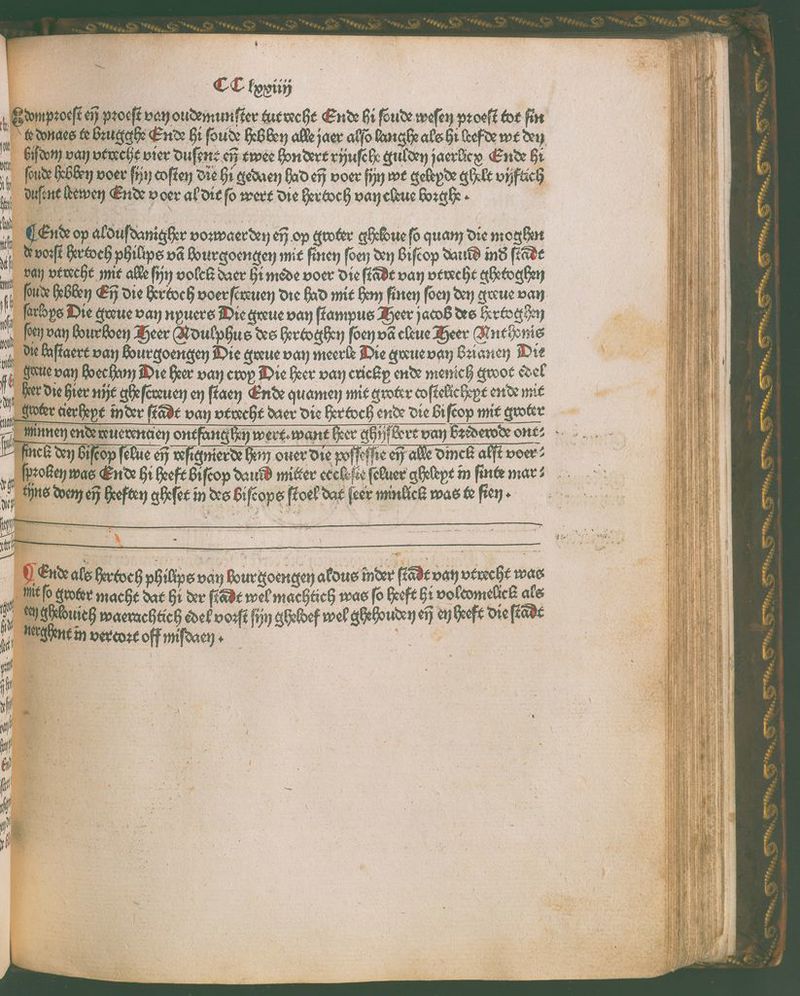 CC lxxiiij
domproest eñ proest van oudemunster tutrecht Ende hi soude wesen proest tot sin
te donaes te brugghe Ende hi soude hebben alle jaer also langhe als hi leefde wt den
bisdom van vtrecht vier dusent eñ twee hondert rijnsche gulden jaerlicx Ende hi
soude hebben voer sijn costen die hi gedaen had eñ voer sijn wt geleyde ghelt vijftich
dusent leewen Ende voer al dit so wert die hertoch van cleue borghe .
¶ Ende op aldusdanigher vorwaerden eñ op groter gheloue so quam die moghen
de vorst hertoch philips vā bourgoengen mit sinen soen den biscop dauid in d̕ stadt
van vtrecht mit alle sijn volck daer hi mede voer die stadt van vtrecht ghetoghen
soude hebben Eñ die hertoch voerscreuen die had mit hem sinen soen den greue van
sarloys Die greue van npuers Die greue van stampus Heer jacob des hertoghen
soen van bourboen Heer Adulphus des hertoghen soen vā cleue Heer Anthonis
die bastaert van bourgoengen Die greue van meerle Die greue van brianen Die
greue van boecham Die heer van croy Die heer van cricky ende menich groot edel
heer die hier nijt ghescreuen en staen Ende quamen mit groter costelicheyt ende mit
groter cierheyt in der stadt van vtrecht daer die hertoch ende die biscop mit groter
minnen ende reuerencien ontfanghen wert . want heer ghijsbert van brederode ont⸗
finck den biscop selue eñ resignierde hem ouer die possessie eñ alle dinck alst voer⸗
sproken was Ende hi heeft biscop dauid mitter ecclesie seluer gheleyt in sinte mar⸗
tijns doem eñ heeften gheset in des biscops stoel dat seer minlick was te sien .
¶ Ende als hertoch philips van bourgoengen aldus in der stadt van vtrecht was
mit so groter macht dat hi der stadt wel machtich was so heeft hi volcomelick als
een ghelouich waerachtich edel vorst sijn gheloef wel ghehouden eñ en heeft die stadt
nerghent in vercort off misdaen .